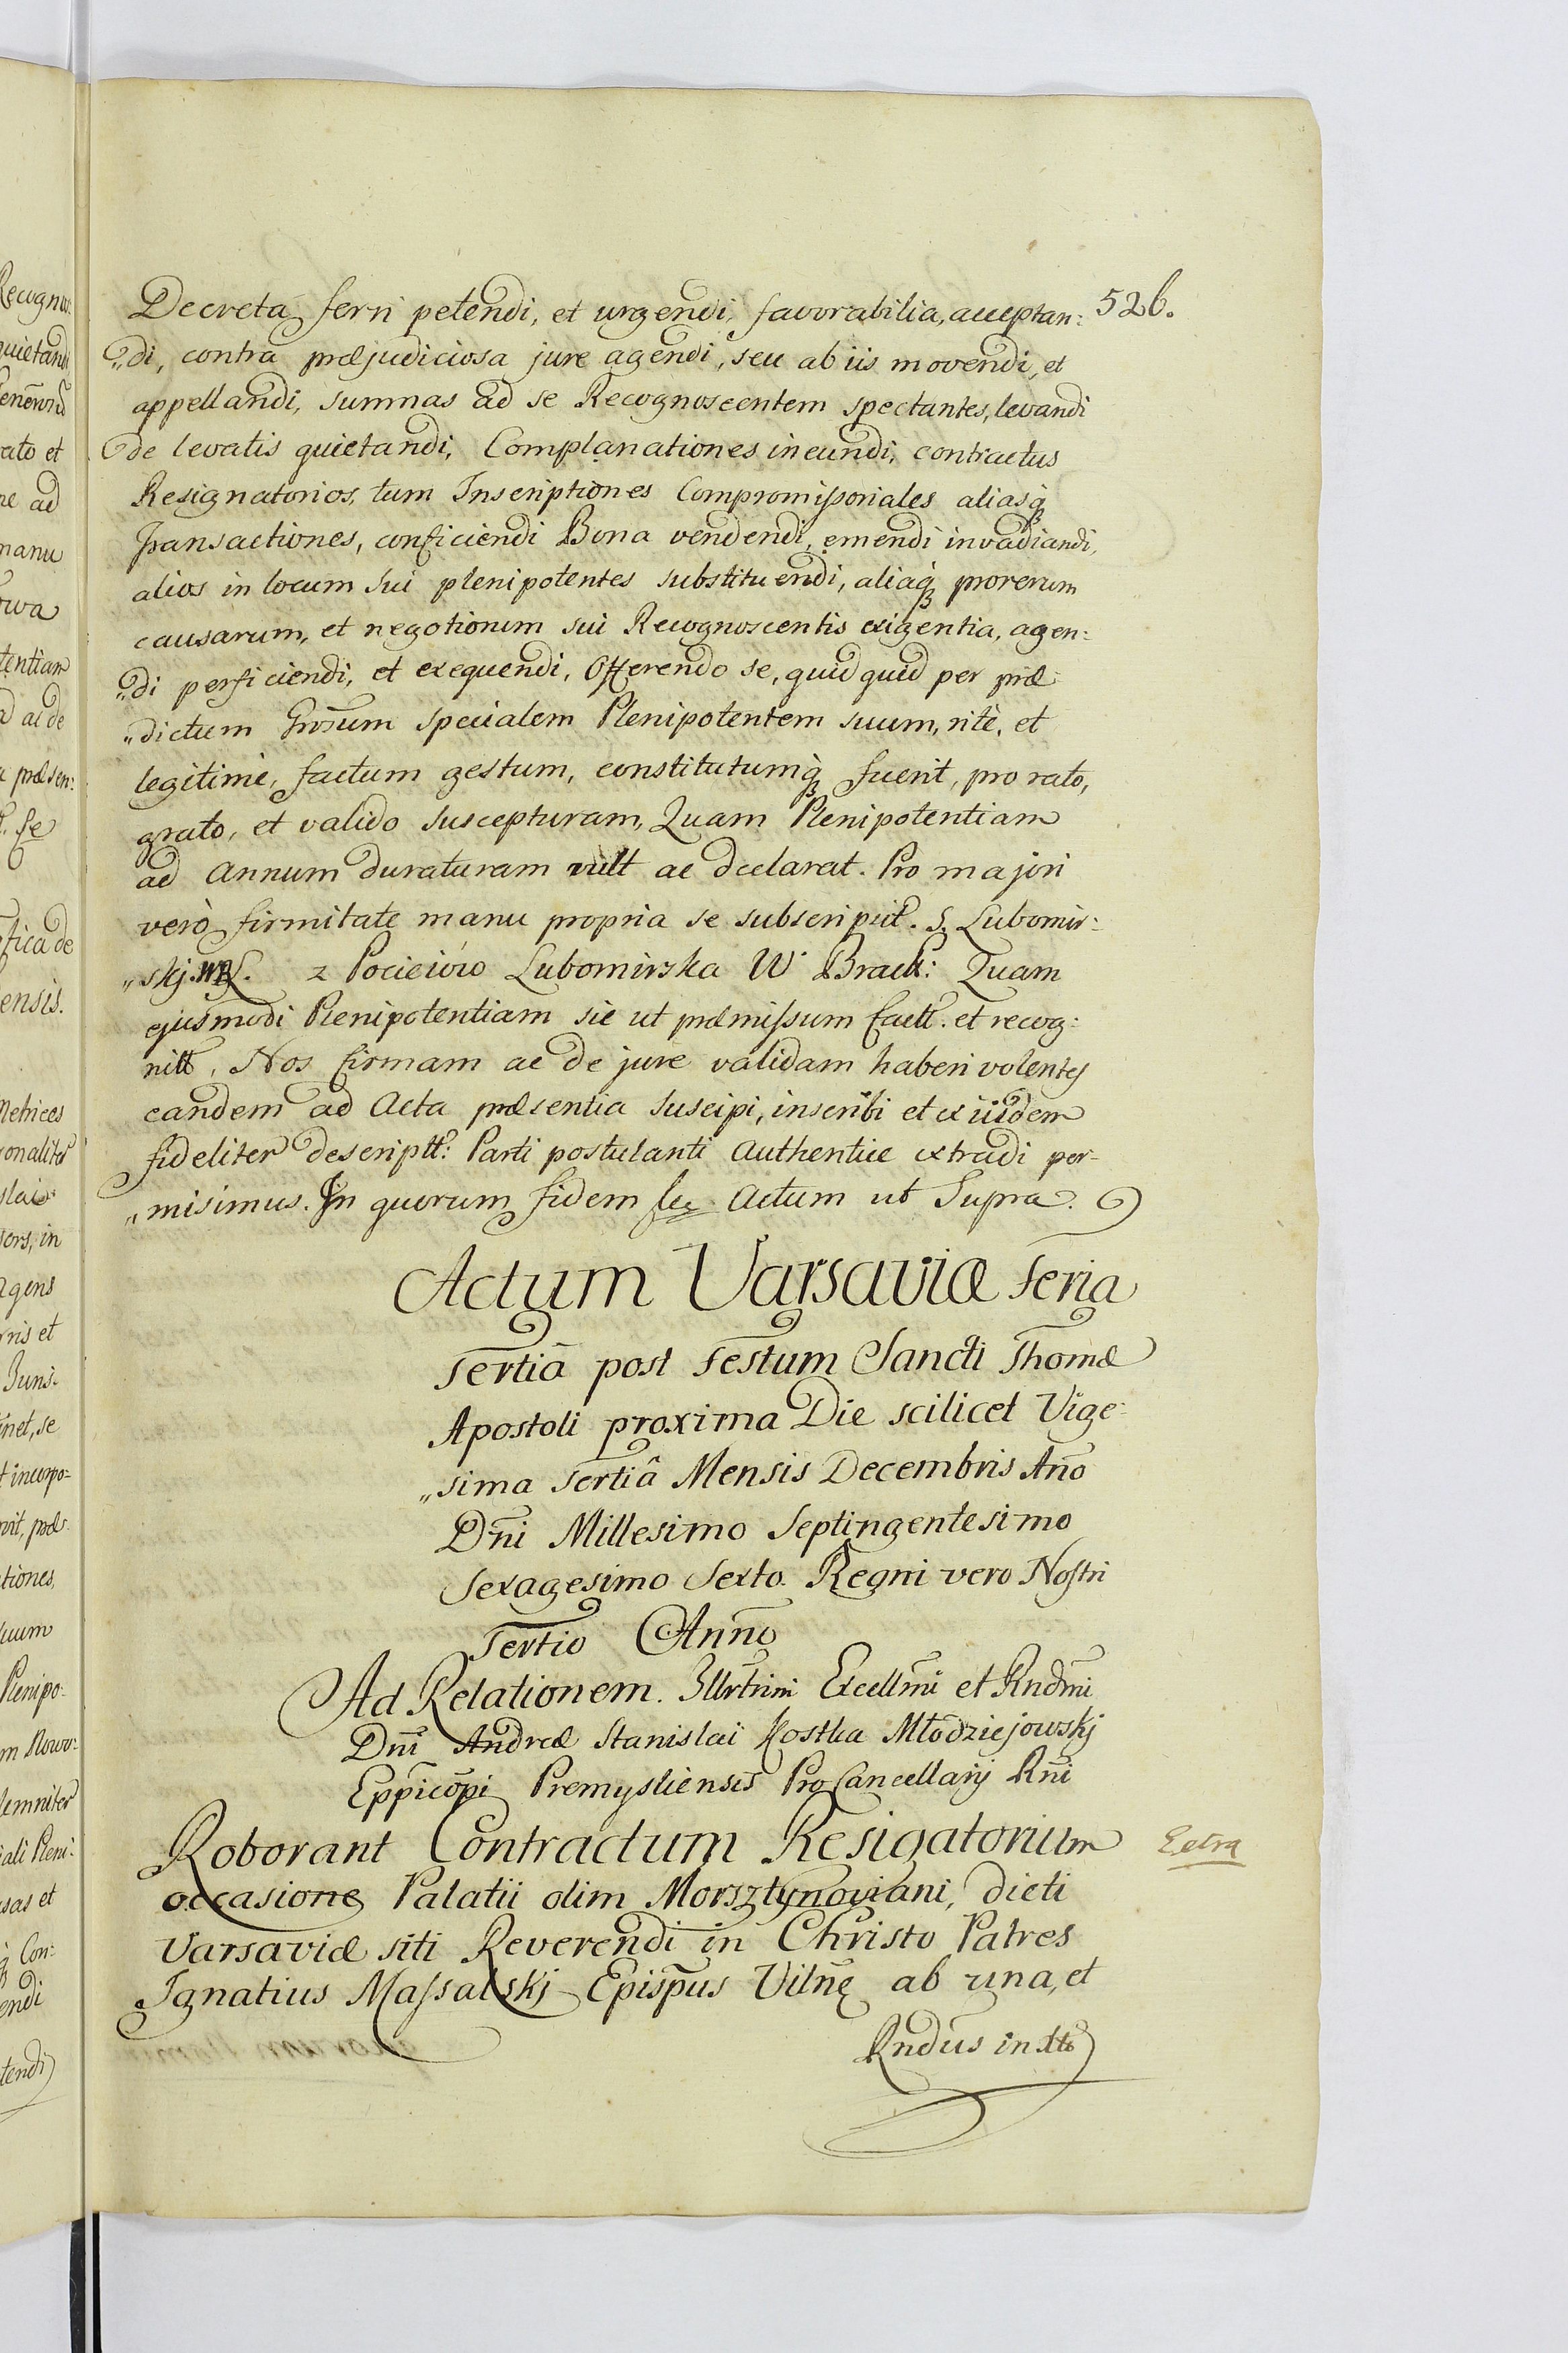 526.
Decreta ferri petendi, et urgendi, favorabilia, acceptan:
„di, contra præjudiciosa jure agendi, seu ab iis movendi, et
appellandi, summas ad se Recognoscentem spectantes, levandi
de levatis quietandi, Complanationes ineundi, contractus
Resignatorios, tum Inscriptiones Compromissoriales aliasq́
Transactiones, conficiendi Bona vendendi, emendi invadiandi,
alios in locum sui plenipotentes substituendi, aliaq́ pro rerum
causarum, et negotiorum sui Recognoscentis exigentia, agen:
„di perficiendi, et exequendi, Offerendo se, quidquid per præ
„dictum Grosum specialem Plenipotentem suum, ritè, et
legitimè, factum gestum, constitutumq́ fuerit, pro rato,
grato, et valido suscepturam, Quam Plenipotentiam
ad Annum duraturam vult ac declarat. Pro majori
verò firmitate manu propria se subscripsit. S. Lubomir:
„skj. z Pocieiów Lubomirska W. Brack: Quam
ejusmodi Plenipotentiam sic ut præmissum factt. et recog:
nitt, Nos firmam ac de jure validam haberi volentes
eandem ad Acta præsentia suscipi, inscribi et ex iisdem
fideliter descriptt: Parti postulanti Authentice extradi per-
„misimus. In quorum fidem etc. Actum ut Supra.
Actum Varsaviæ feria
Tertiâ post Festum Sancti Thomæ
Apostoli proxima Die scilicet Vige-
„sima Tertiâ Mensis Decembris Año
Dñi Millesimo Septingentesimo
Sexagesimo Sexto. Regni vero Nostri
Tertio Anno
Ad Relationem. Illrtrimi Excellm̃i et Rndm̃i
Dñi Andreæ Stanislai Kostka Młodziejowskj
Eppicõpi Premysliensis ProCancellarij Rñi
Roborant Contractum Resigatorium
Extra
occasione Palatii olim Morsztynoviani, dicti
Varsaviæ siti Reverendi in Christo Patres
Ignatius Massalskj Episp̃us Vilnẽ ab una, et
Rndus in Xto